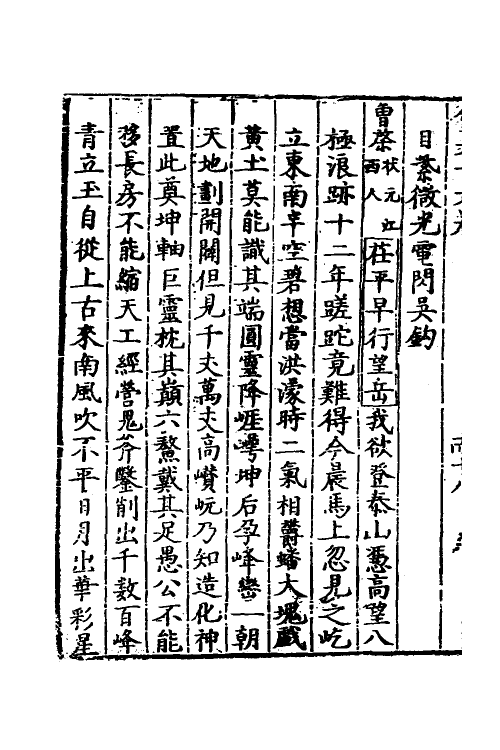 目紫微光電閃吳鈎
曾棨狀元江西人茌平早行望岳我欲登泰山憑高望八
極浪跡十二年蹉跎竟難得今晨馬上忽見之屹
立東南半空碧想當洪濛時二氣相欝蟠大塊戱
黄土莫能識其端圓靈降崕嶀坤后孕峰巒一朝
天地劃開闢但見千丈萬丈高巑岏乃知造化神
置此奠坤軸巨靈枕其巔六鰲戴其足愚公不能
移長房不能縮天工經營鬼斧鑿削出千数百峰
青立玉自從上古來南風吹不平日月出華彩星